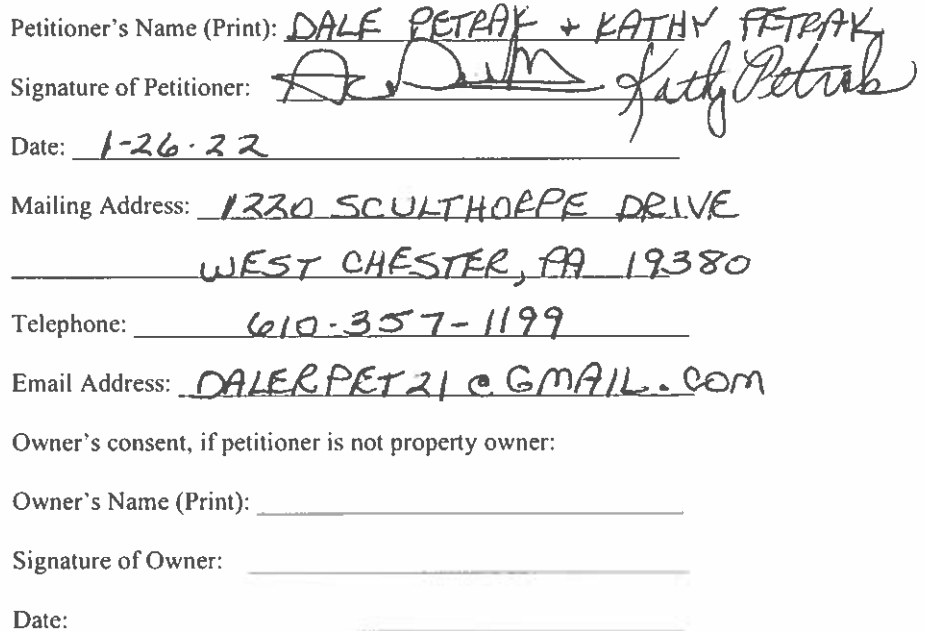 Petitioner's Name (Print): DALE PETRAK + KATHY PETRAK
Signature of Petitioner: Kathy Petrak
Date: 1-26-22
Mailing Address: 1220 SCULTHORPE DRIVE
WEST CHESTER, PA 19380
Telephone: 610-357-1199
Email Address: DALERPET21@GMAIL.COM
Owner's consent, if petitioner is not property owner:
Owner's Name (Print):
Signature of Owner:
Date: